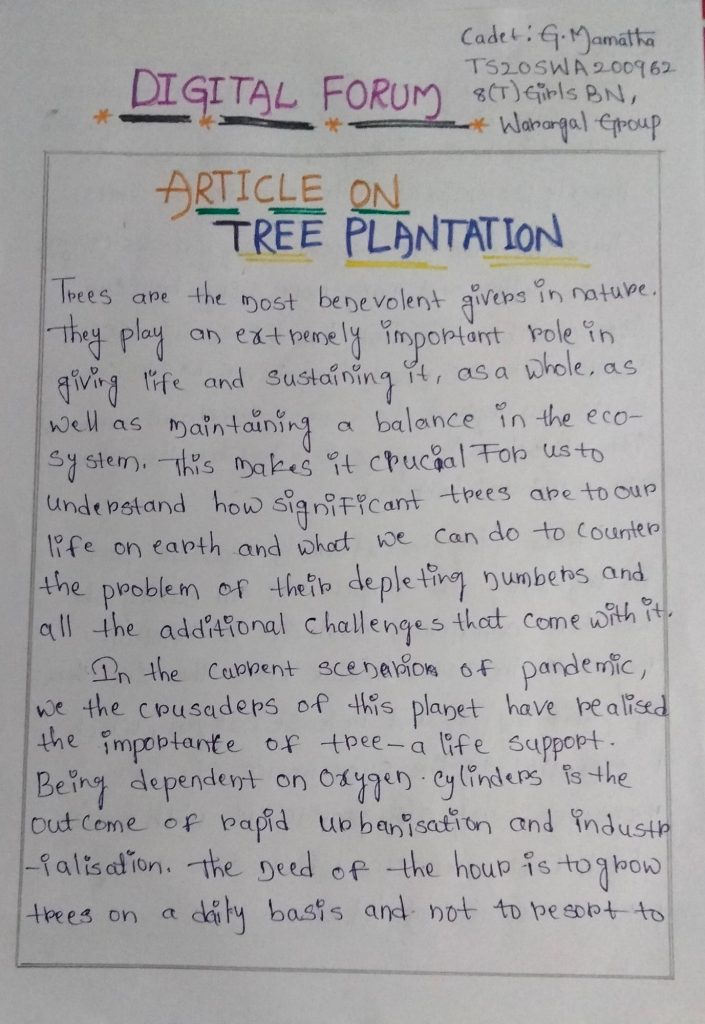 Cadet: G. Mamatha
TS20SWA200962
8(T) Girls BN,
Warangal Group
DIGITAL FORUM
ARTICLE ON
TREE PLANTATION
Trees are the most benevolent givers in nature.
They play an extremely important role in
giving life and sustaining it, as a whole. as
well as maintaining a balance in the eco-
system. This makes it crucial For us to
understand how significant trees are to our
life on earth and what we can do to counter
the problem of their depleting numbers and
all the additional challenges that come with it.
In the current scenario of pandemic,
we the crusaders of this planet have realised
the importante of tree - a life support.
Being dependent on oxygen cylinders is the
outcome of rapid urbanisation and industr
-ialisation. The need of the hour is to grow
trees on a daily basis and not to resort to